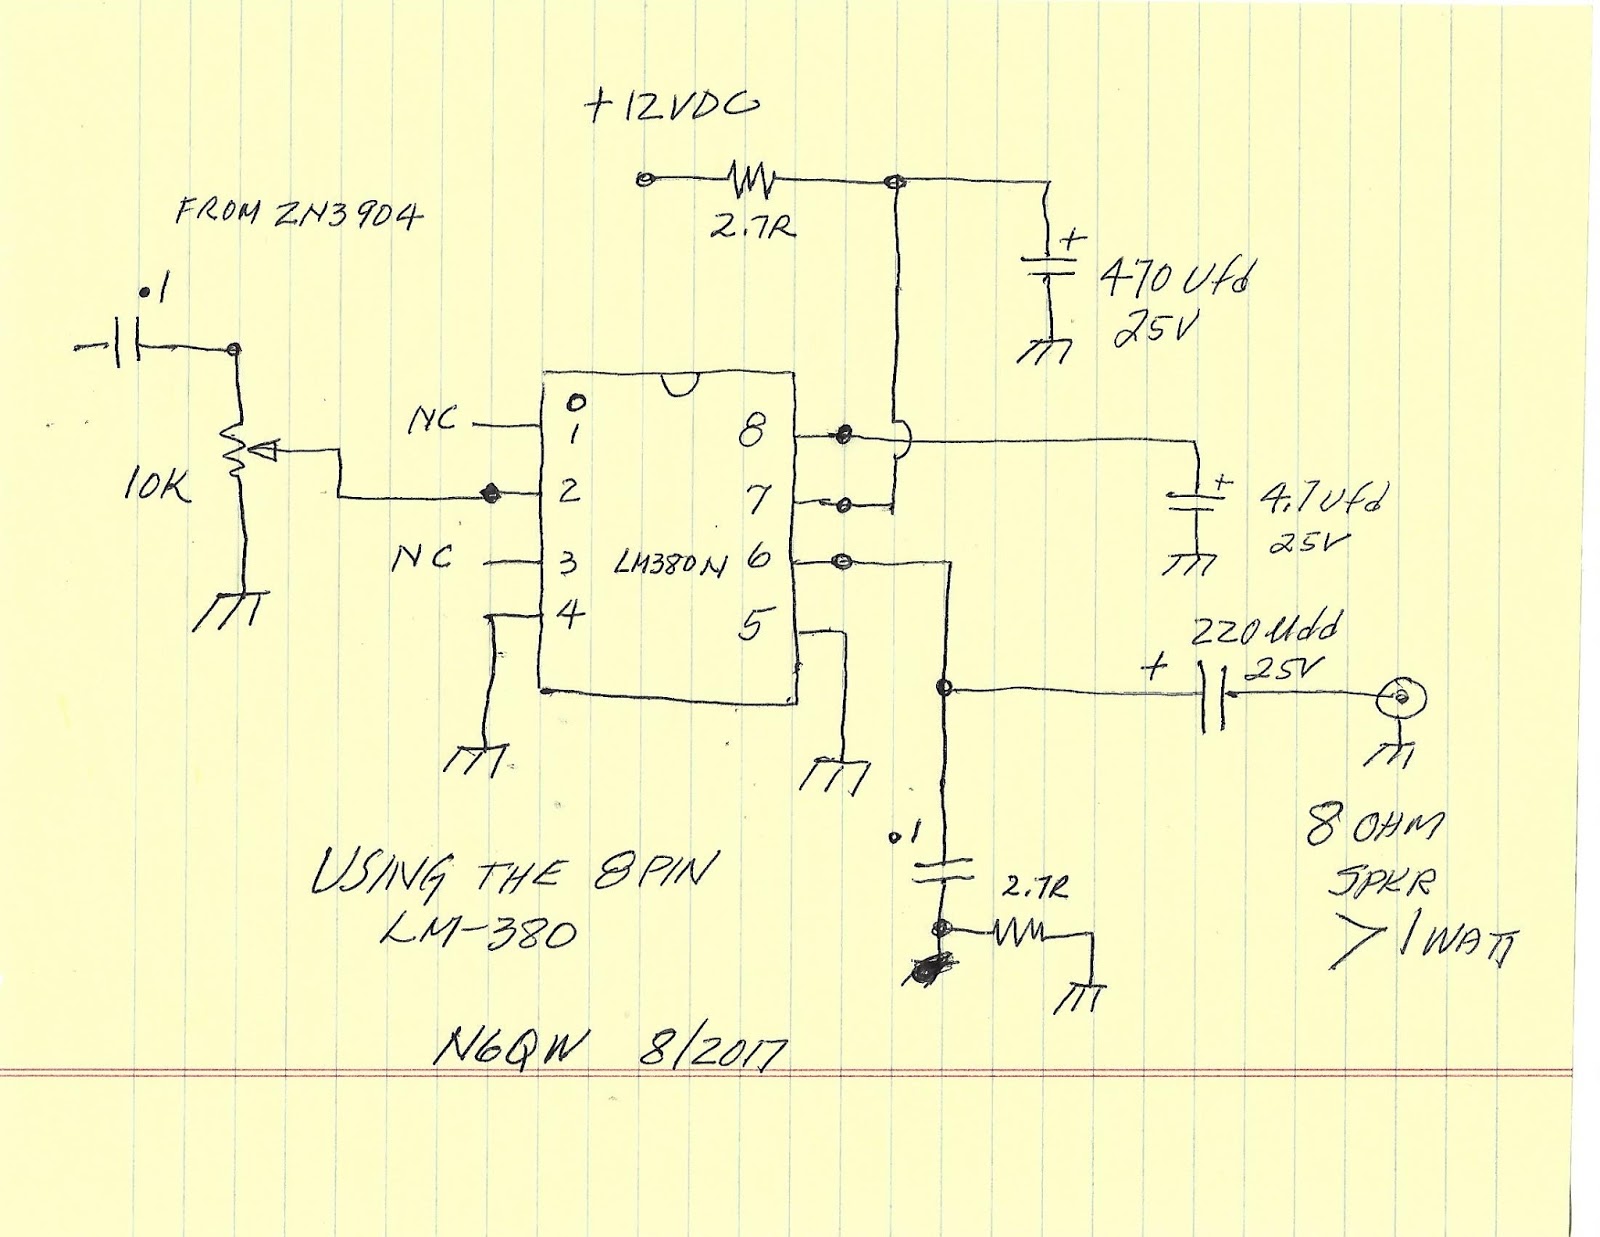 +12VDC
2.7R
FROM 2N3904
+
470 Ufd
25V
.1
10K
NC
NC
0
1
2
3
4
LM380N
8
7
6
5
+
4.7Ufd
25V
220Udd
25V
+
.1
2.7R
8 OHM
SPKR
>1WATT
USING THE 8PIN
LM-380
N6QW 8/2017